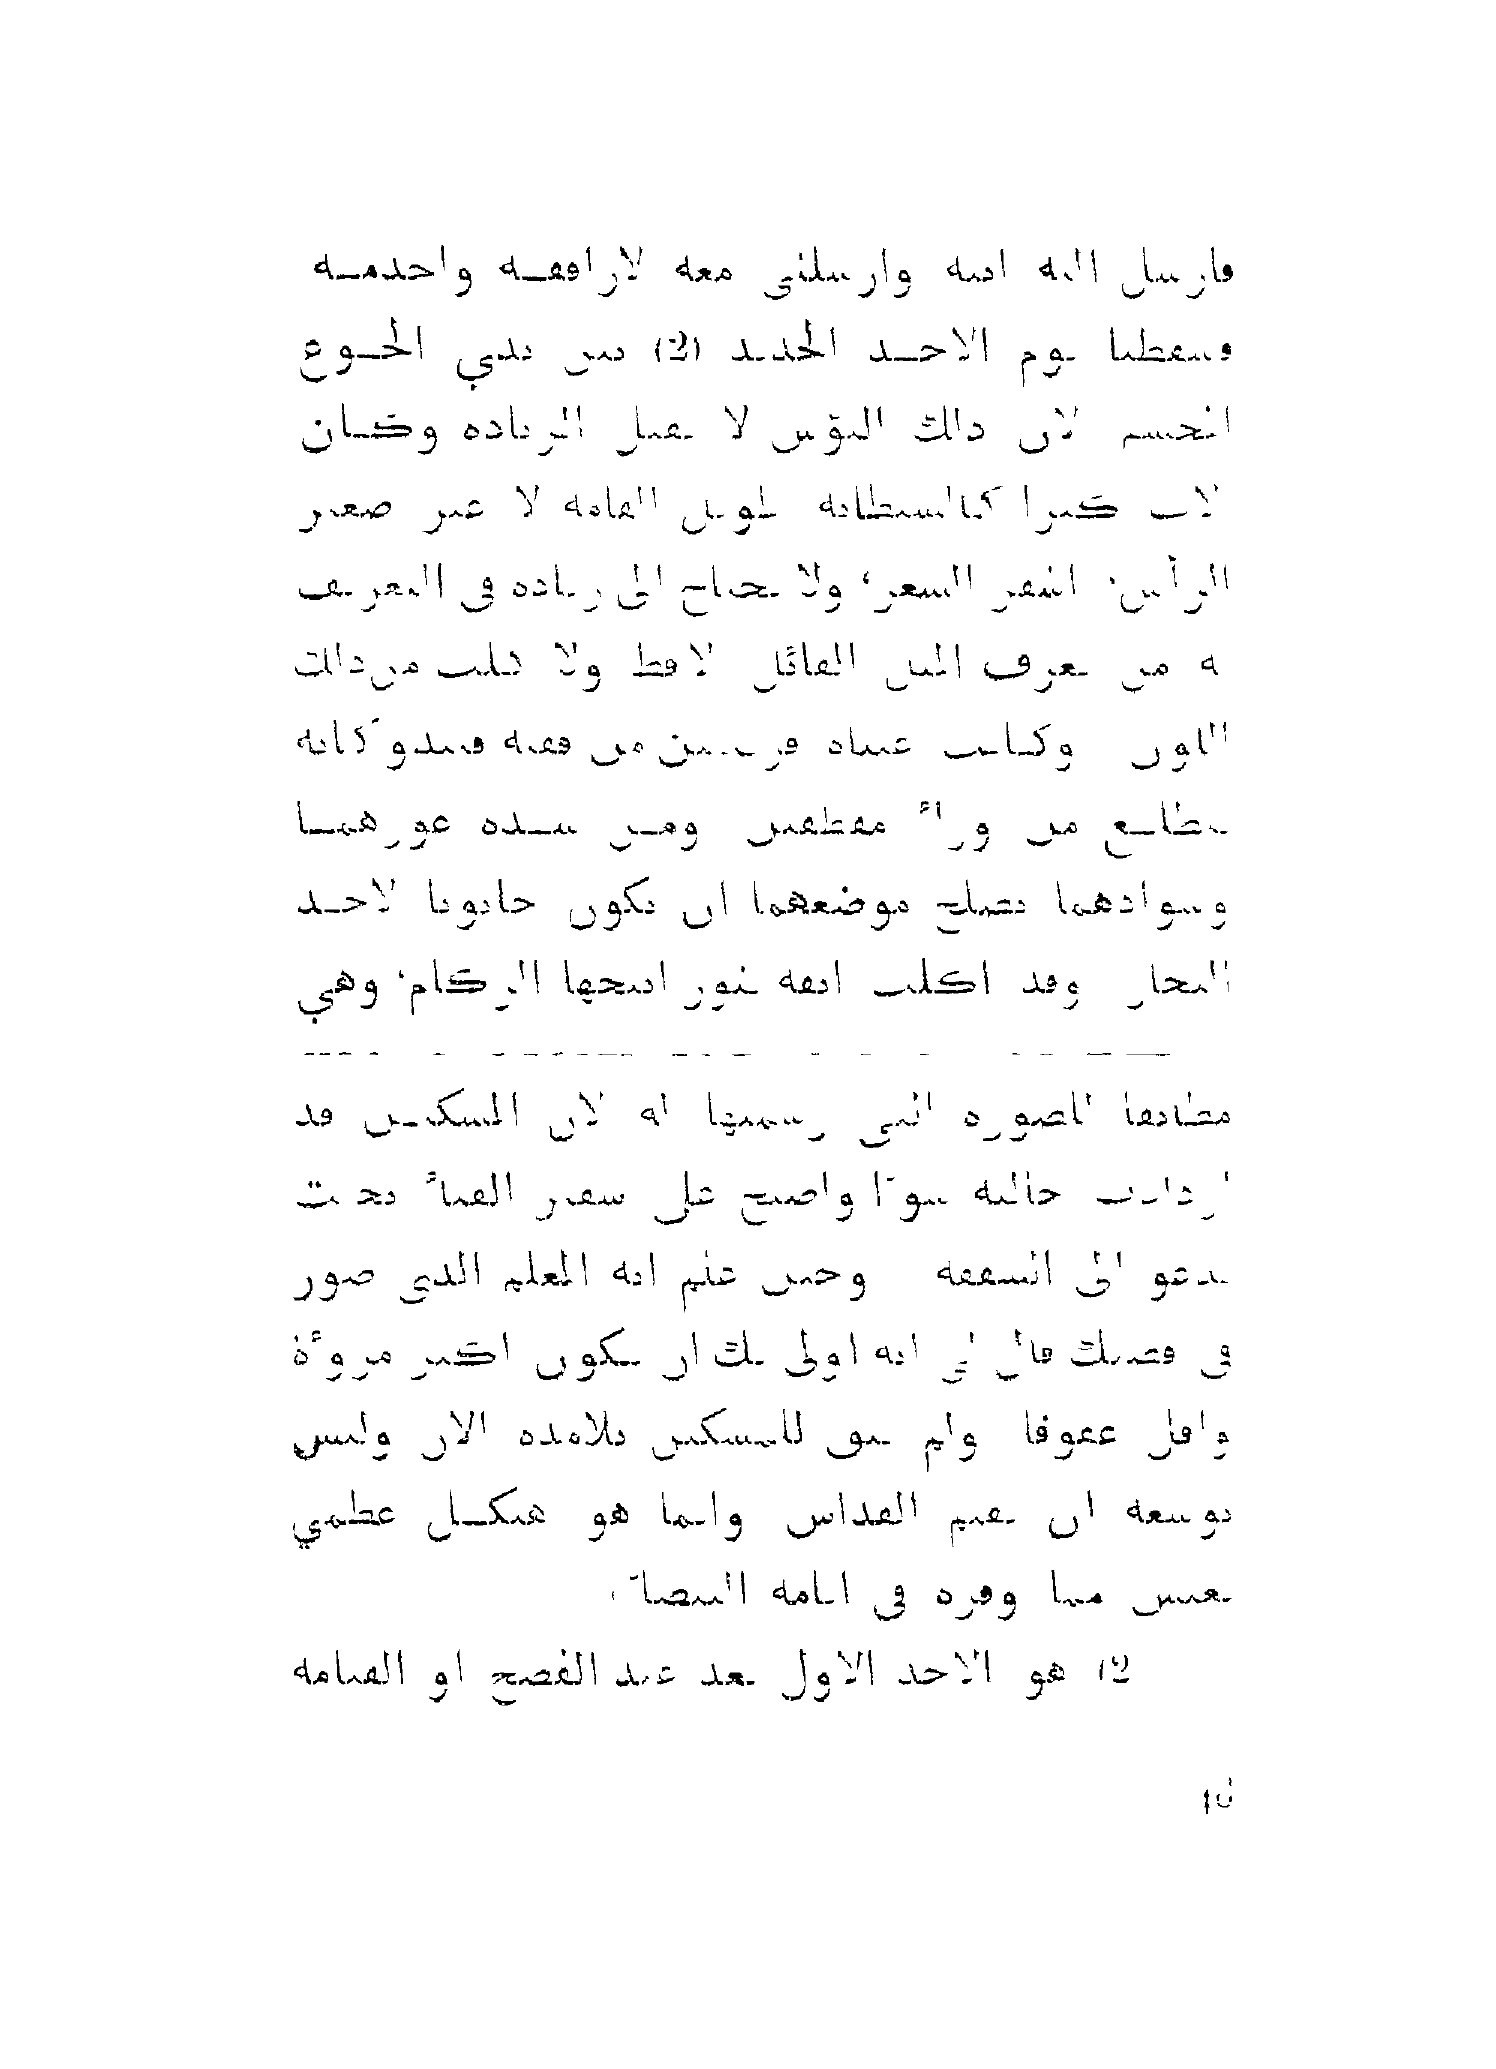 فارسل اليه ابنه وارسلني معه لارافقه واخدمه
وسقطنا يوم الاحد الجديد (2) بين يدي الجوع
المجسم لان ذلك البؤس لا يقبل الزيادة وكان
الاب كبيرا كالسبطانة طويل القامة لا غير صغير
الرأس، اشقر الشعر، ولا يحتاج الى زيادة في التعريف
به من يعرف المثل القائل لا قط ولا كلب من ذلك
اللون وكانت عيناه قريبتين من قفيه فيبدو كأنه
يطلع من وراء مقطفين ومن شدة غورهما
وسوادهما يصلح موضعهما ان يكون حانوتا لاحد
التجار وقد اكلت انفه بثور انتجها الزكام، وهي
مطابقة للصورة التي رسمتها له لان المسكين قد
ازدادت حالته سوءا واصبح على شفير الفناء بحيث
يدعو الى الشفقة وحين علم انه المعلم الذي صور
في قصتك قال لي انه اولى بك ان تكون اكثر مروءة
واقل عقوقا ولم يبق للمسكين تلامذة الآن وليس
بوسعه ان يقيم القداس وانما هو هيكل عظمي
يعيش مما وفره في ايامه البيضاء
2) هو الاحد الاول بعد عيد الفصح او القيامة